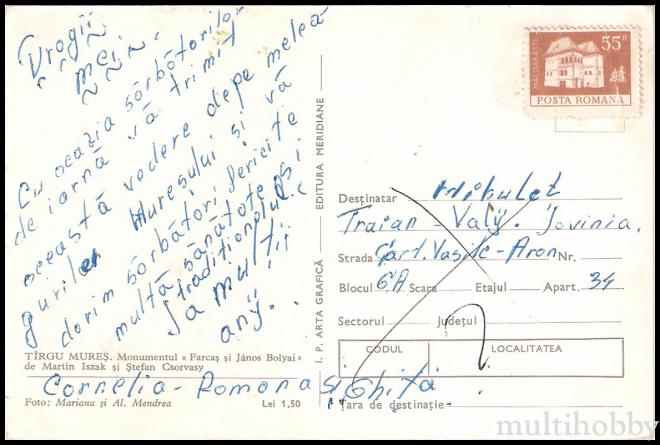 Dragii
mei.
Cu ocazia sărbătorilor
de iarnă vă trimit
această vedere depe melea
gurile Mureșului și vă
dorim sărbători fericite
multă sănătate și
tradiționalul
La mulți
ani.
TÎRGU MUREȘ. Monumentul « Farcaș și János Bolyai »
de Martin Iszak și Ștefan Csorvasy
Cornelia - Romona și Ghiță
Foto: Mariana și Al. Mendrea
Lei 1,50
I. P. ARTA GRAFICĂ — EDITURA MERIDIANE
55B
MĂLDĂRĂȘTI
POSTA ROMANA
Destinatar Mihuleț
Traian - Valy. Jovinia.
Strada Cart. Vasile - Aron Nr.
Blocul 6A Scara Etajul Apart. 34
Sectorul Județul
CODUL LOCALITATEA
Țara de destinație
multihobby